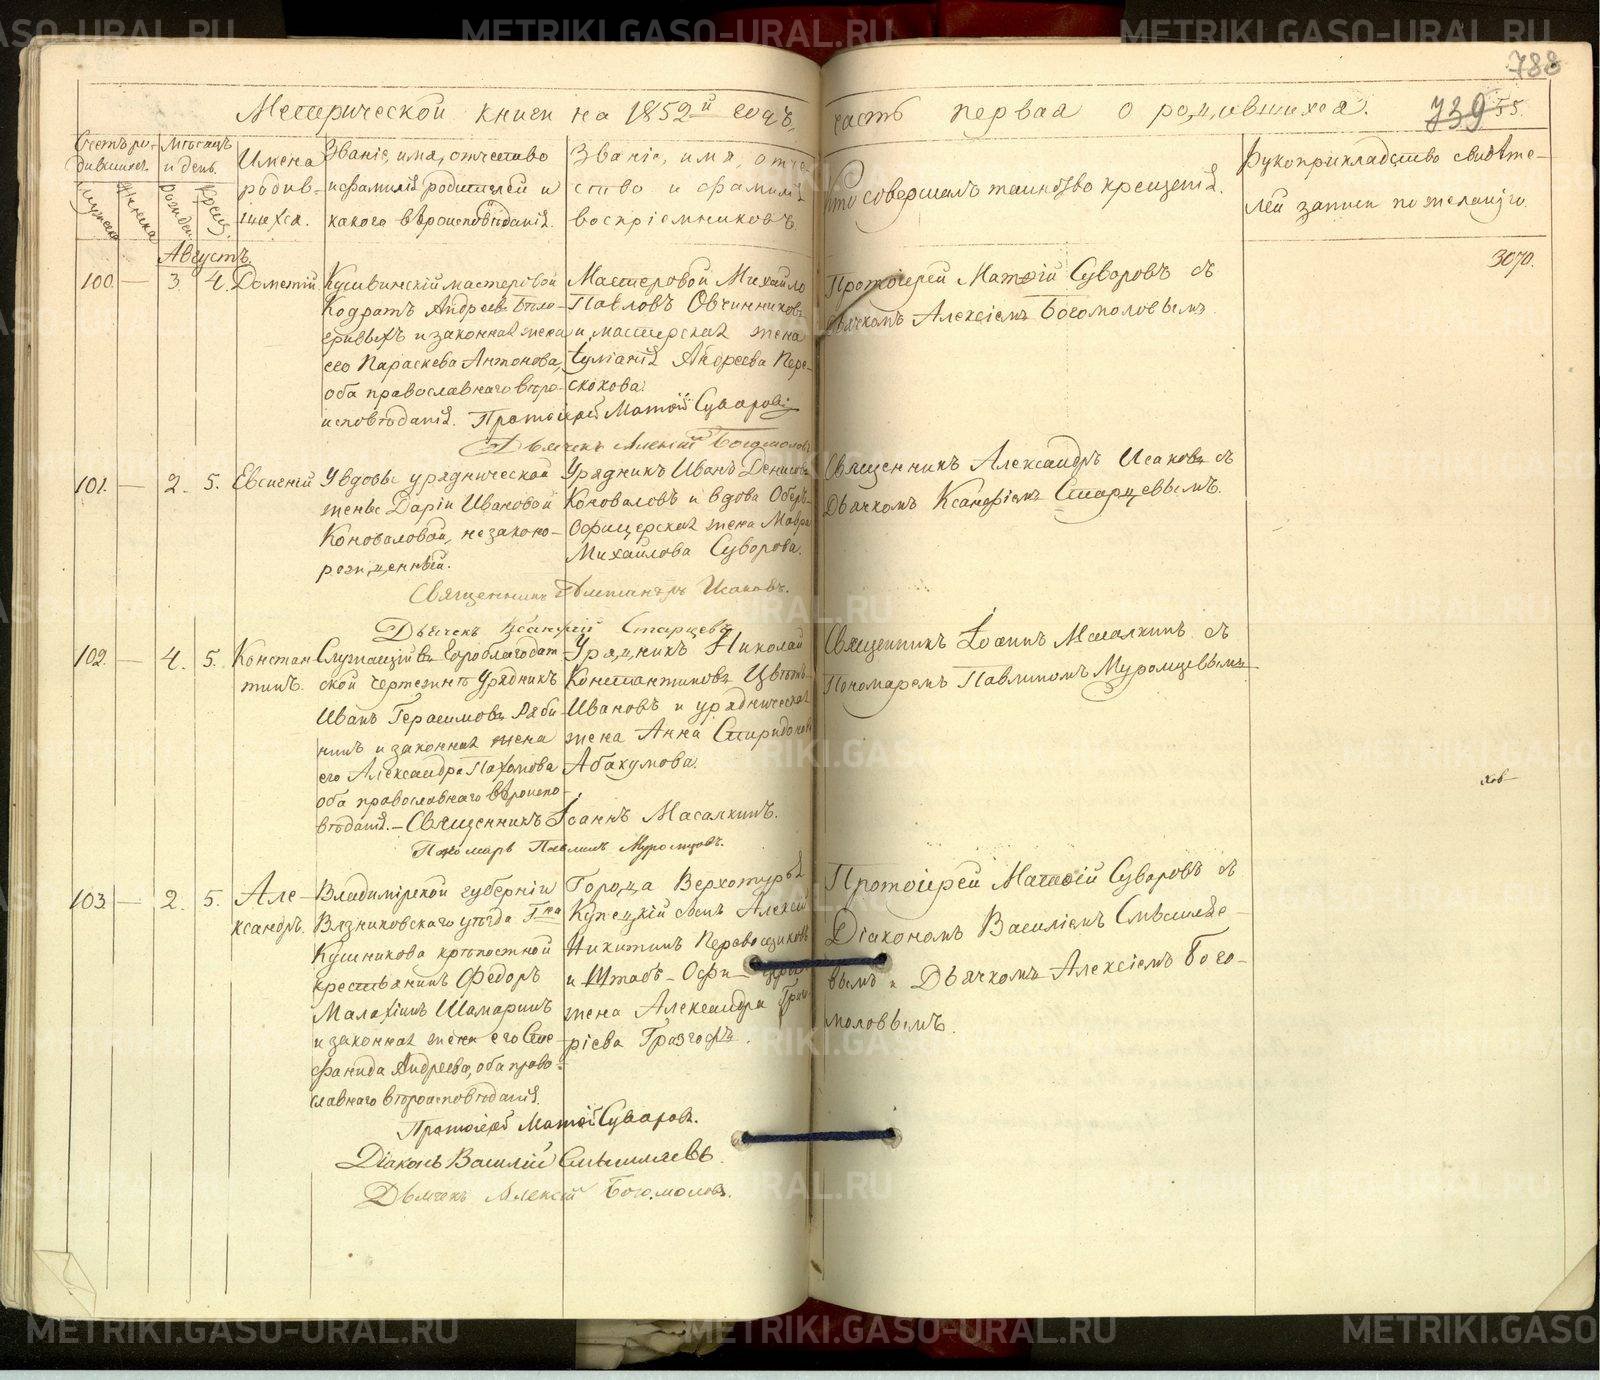 788
Метрической книги на 1852й годъ, часть первая о родившихся.
739
55
Счетъ ро-
дившихся.
Мѣсяцъ
и день.
Имена
родив-
шихся.
Званіе, имя, отчество
и фамилія родителей и
какого вѣроисповѣданія.
Званіе, имя, отче-
ство и фамилія
воспріемниковъ.
Кто совершалъ таинство крещенія.
Рукоприкладство свидѣте-
лей записи по желанію.
Августъ.
3070.
100. — 3. 4. Дометій.
Кушвинскій мастеровой
Кодратъ Андреевъ Бѣло-
и законная жена
его Параскева Антонова,
оба православнаго вѣро-
исповѣданія. Протоіерей Матѳій Суворовъ
Дьячекъ Алексій Богомоловъ
Мастеровой Михайло
Павловъ Овчинниковъ
и мастерская жена
Андреева Пере-
скокова.
Протоіерей Матѳій Суворовъ съ
дьячкомъ Алексіемъ Богомоловымъ.
101. — 2. 5. Евсигній
У вдовы уряднической
жены Даріи Ивановой
Коноваловой, незаконо-
рожденный.
Священникъ Александръ Исаковъ.
Дьячекъ Ксанѳій Старцевъ
Урядникъ Иванъ Денисовъ
Коноваловъ и вдова Оберъ-
Офицерская жена Мавра
Михайлова Суворова.
Священникъ Александръ Исаковъ съ
Дьячкомъ Ксанѳіемъ Старцевымъ.
102. — 4. 5. Констан
тинъ.
Служащій въ Гороблагодат
ской чертежнѣ Урядникъ
Иванъ Герасимовъ Ряби
нинъ и законная жена
его Александра Пахомова
оба православнаго вѣроиспо-
вѣданія. — Священникъ Іоаннъ Масалкинъ.
Пономарь Павлинъ Муромцовъ.
Урядникъ Николай
Константиновъ Цвѣт
Ивановъ и урядническая
жена Анна Спиридонова
Абакумова.
Священникъ Іоаннъ Масалкинъ съ
Пономаремъ Павлиномъ Муромцевымъ
103. — 2. 5. Але-
ксандръ.
Владимірской губерніи
Вязниковскаго уѣзда Гна
Кушникова крѣпостной
крестьянинъ Федоръ
Малахіинъ Шамаринъ
и законная жена его Сте-
фанида Андреева, оба право-
славнаго вѣроисповѣданія.
Протоіерей Матѳій Суворовъ.
Діаконъ Василій Смышляевъ.
Дьячекъ Алексій Богомоловъ.
Города Верхотурья
Купецкій сынъ Алексѣй
Никитинъ Перевощиковъ
и Штабъ-Офицерская
жена Александра Григо-
рьева Гразгофъ.
Протоіерей Матѳій Суворовъ съ
Діакономъ Василіемъ Смышляе-
вымъ и Дьячкомъ Алексіемъ Бого-
моловымъ.
METRIKI.GASO-URAL.RU